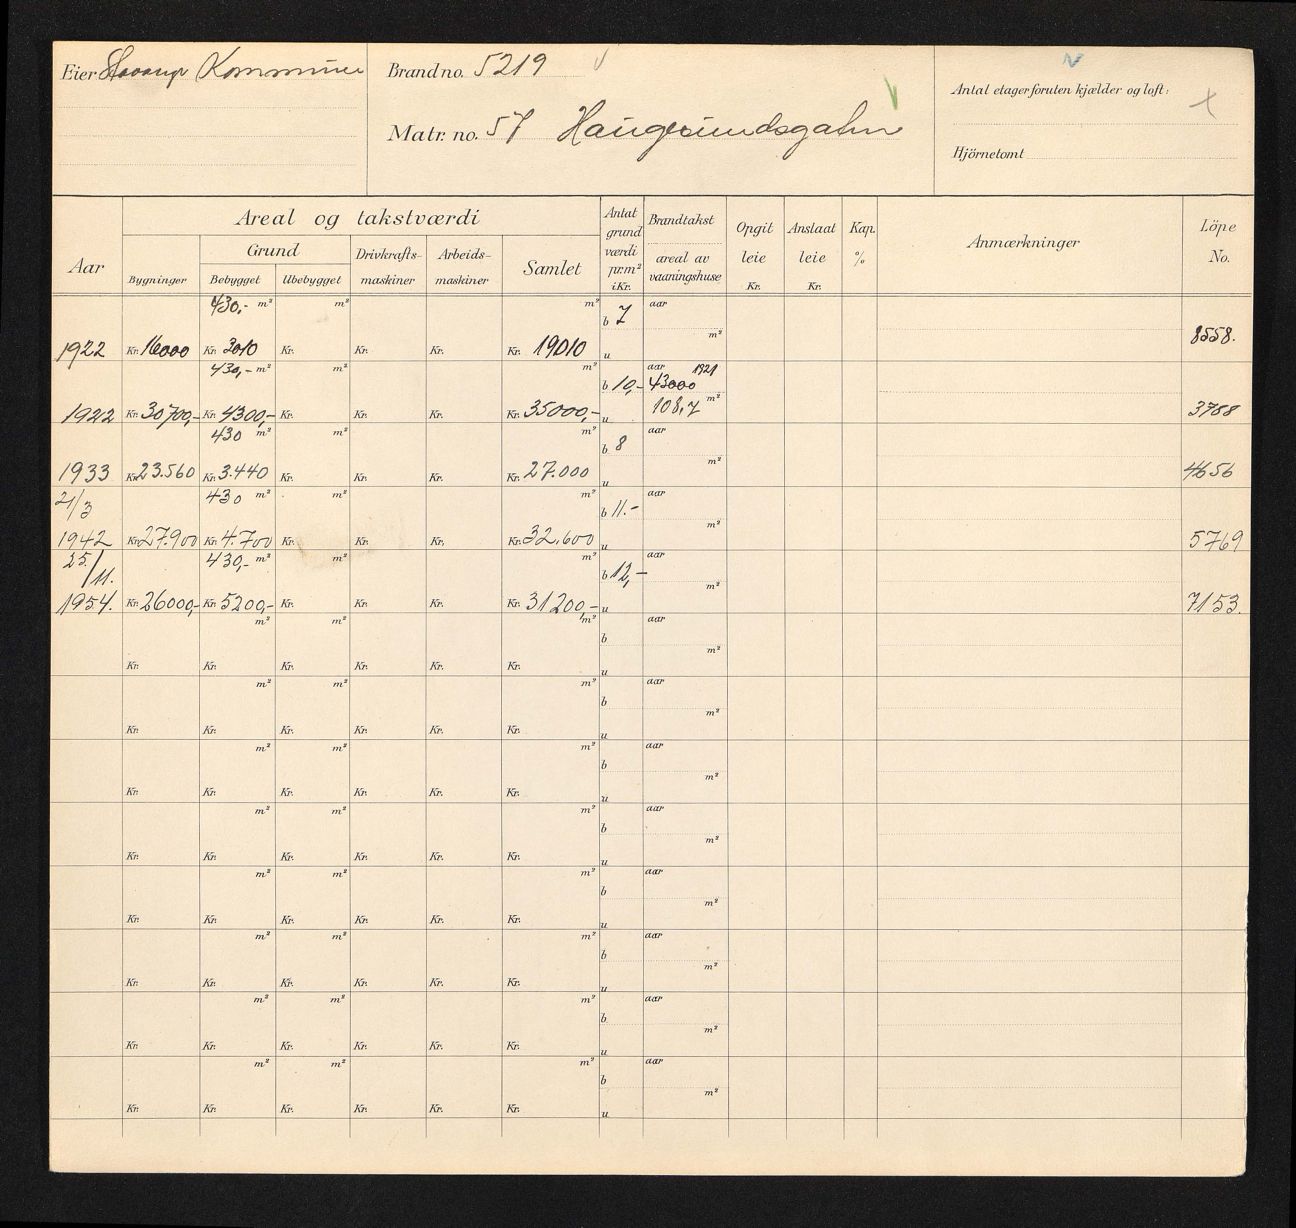 Eier Stavanger Kommune
Brand no. 5219
Matr. no. 57 Haugesundsgaten
Antal etager foruten kjælder og loft:
Hjörnetomt
Aar
Areal og takstværdi
Bygninger
Grund
Bebygget
Ubebygget
Drivkrafts-
maskiner
Arbeids-
maskiner
Samlet
Antat
grund
værdi
pr. m²
i Kr.
Brandtakst
areal av
vaaningshuse
Opgit
leie
Kr.
Anslaat
leie
Kr.
Kap.
%
Anmærkninger
Löpe
No.
430,- m² m² m² b 7 aar
m²
1922 Kr. 16000 Kr. 3010 Kr. Kr. Kr. Kr. 19010 u 8558.
430,- m² m² m² b 10,- aar 1921
43000
108,7 m²
1922 Kr. 30700,- Kr. 4300,- Kr. Kr. Kr. Kr. 35000,- u 3788
430 m² m² m² b 8 aar
m²
1933 Kr. 23.560 Kr. 3.440 Kr. Kr. Kr. Kr. 27.000 u 4656
21/3 430 m² m² m² b 11.- aar
m²
1942 Kr. 27.900 Kr. 4.700 Kr. Kr. Kr. Kr. 32.600 u 5769
25./11. 430,- m² m² m² b 12,- aar
m²
1954. Kr. 26000,- Kr. 5200,- Kr. Kr. Kr. Kr. 31200,- u 7153.
m² m² m² b aar
m²
Kr. Kr. Kr. Kr. Kr. Kr. u
m² m² m² b aar
m²
Kr. Kr. Kr. Kr. Kr. Kr. u
m² m² m² b aar
m²
Kr. Kr. Kr. Kr. Kr. Kr. u
m² m² m² b aar
m²
Kr. Kr. Kr. Kr. Kr. Kr. u
m² m² m² b aar
m²
Kr. Kr. Kr. Kr. Kr. Kr. u
m² m² m² b aar
m²
Kr. Kr. Kr. Kr. Kr. Kr. u
m² m² m² b aar
m²
Kr. Kr. Kr. Kr. Kr. Kr. u
m² m² m² b aar
m²
Kr. Kr. Kr. Kr. Kr. Kr. u